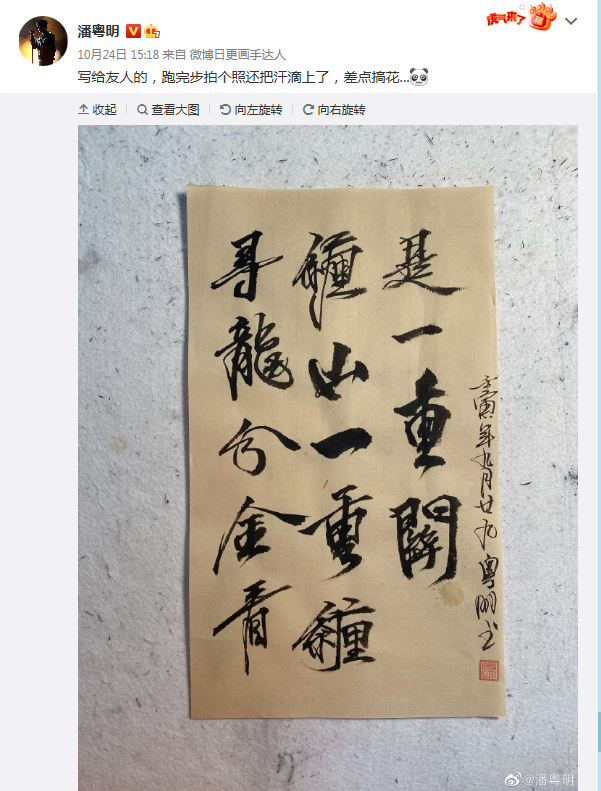 潘粤明
虎气来了
福
10月24日 15:18 来自 微博日更画手达人
写给友人的，跑完步拍个照还把汗滴上了，差点搞花...
收起
查看大图
向左旋转
向右旋转
尋龍分金看
纏山一重纏
是一重關
壬寅年九月廿九粤明书
@潘粤明